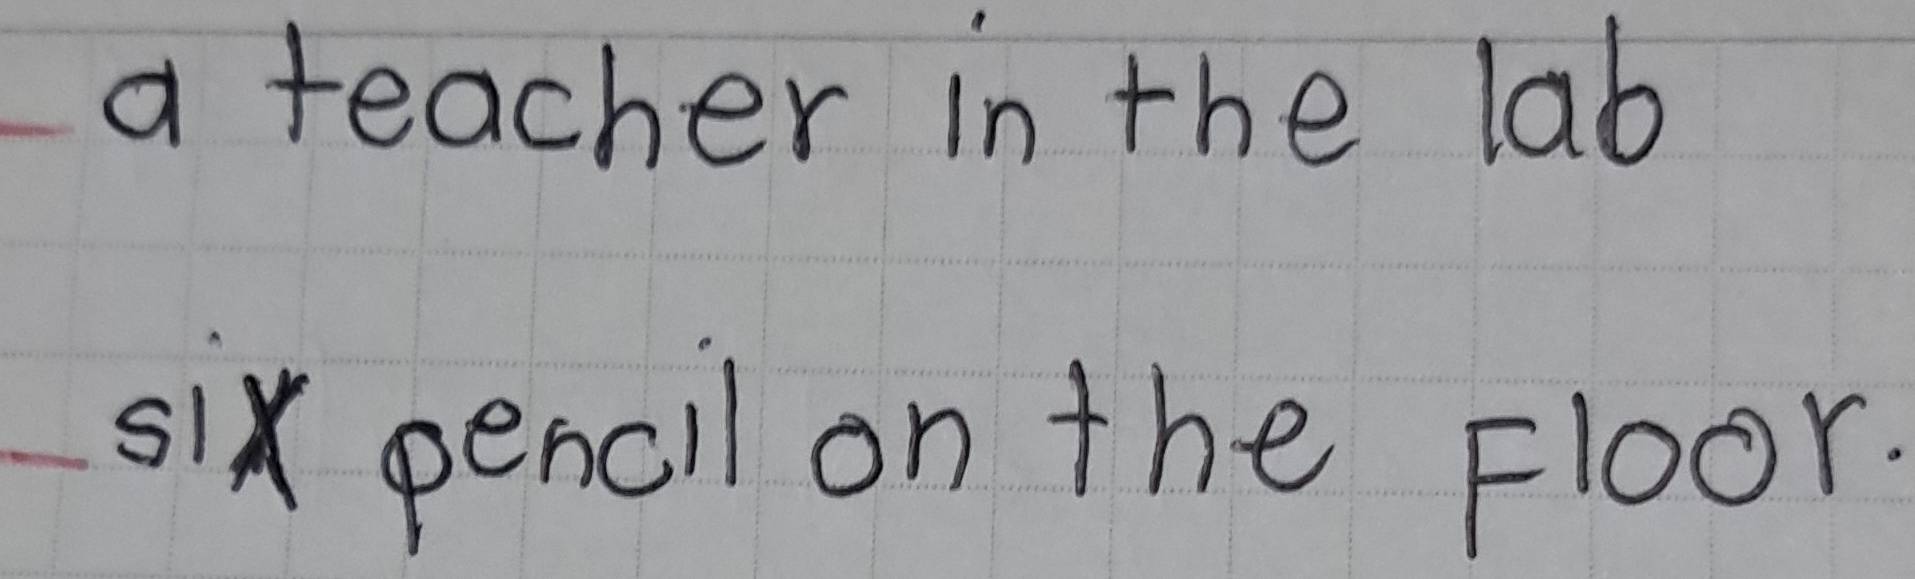 a teacher in the lab
six pencil on the Floor.